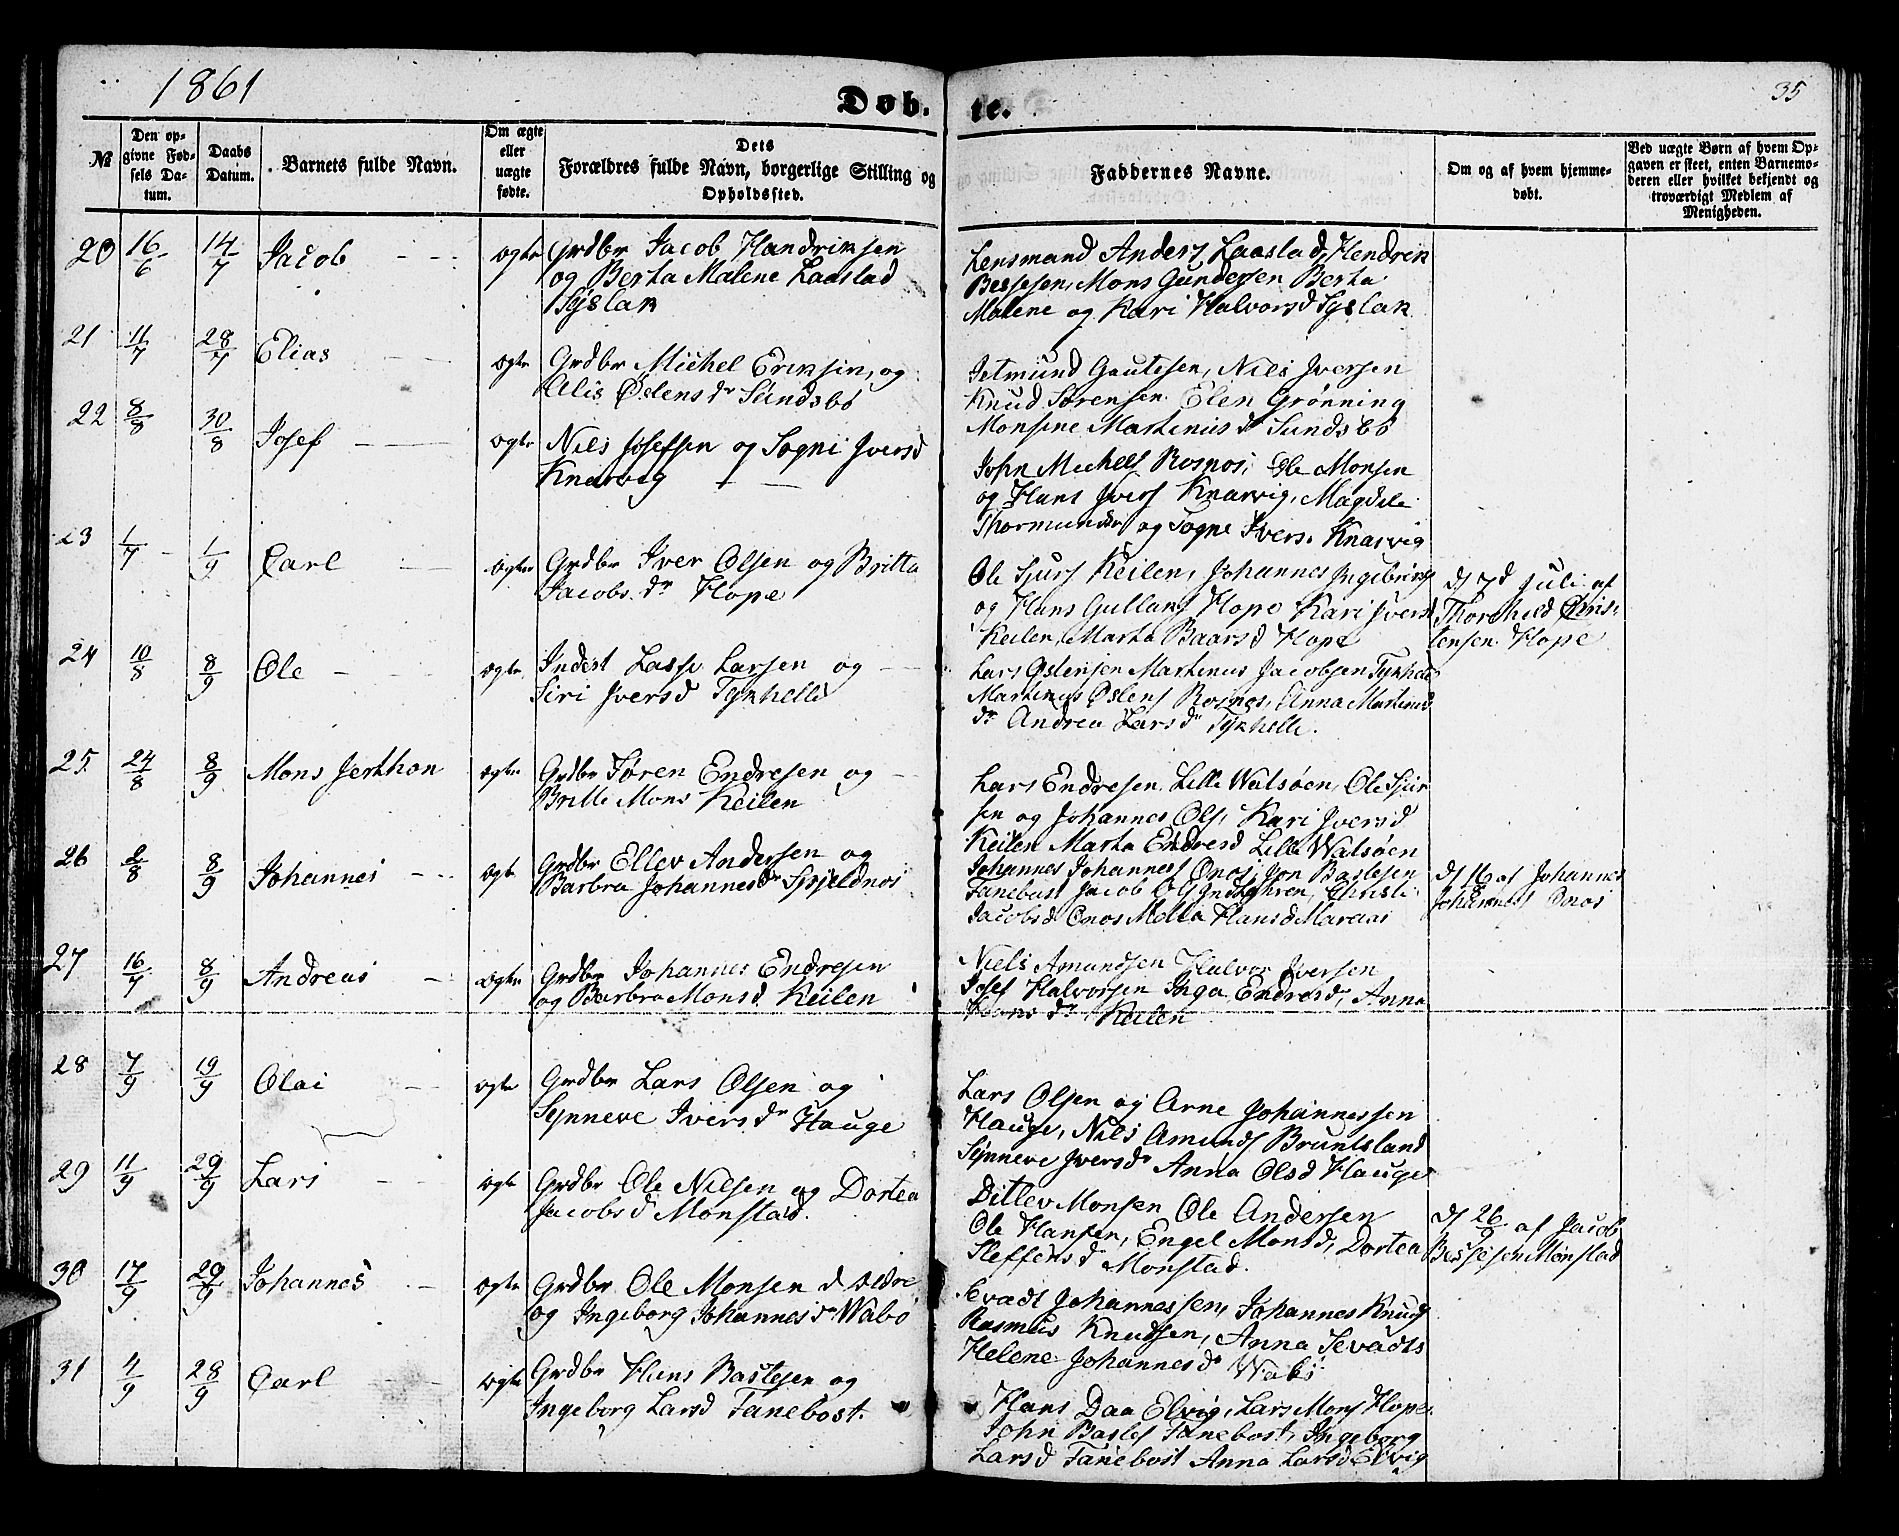 1861
Døb-
te.
35
№
Den op-
givne Fød-
sels Da-
tum.
Daabs
Datum.
Barnets fulde Navn.
Om ægte
eller
uægte
fødte.
Dets
Forældres fulde Navn, borgerlige Stilling og
Opholdssted.
Faddernes Navne.
Om og af hvem hjemme-
døbt.
Ved uægte Børn af hvem Op-
gaven er skeet, enten Barnemo-
deren eller hvilket bekjendt og
troværdigt Medlem af
Menigheden.
20 16/6 14/7 Jacob ægte Grdbr Jacob Handriksen
og Berta Malene Laastad
Syslak
Lensmand Anders Laastad, Hendrik
Bessesen, Mons Gundersen Berta
Malene og Kari Halvorsd Syslak
21 11/7 28/7 Elias ægte Grdbr Michel Eriksen, og
Alis Østensdr Sundsbø
Jetmund Gautesen, Nils Iversen
Knud Sørensen Elen Grønning
Monsine Martinusd Sundsbø
22 8/8 30/8 Josef ægte Nils Josefsen og Sogni Iversd
Knarvig
John Michels Rosnos, Ole Monsen
og Hans Ivers Knarvig, Magdele
Thormundsdr og Sogne Ivers. Knarvig
23 1/7 1/9 Carl ægte Grdbr Iver Olsen og Britta
Jacobs.dr Hope
Ole Sjurs Keilen, Johannes Ingebrigs
og Hans Gullans Hope Kari Iversd
Keilen, Marta Baarsd Hope
ds 7d Juli af
Thorchild Chris-
tensen Hope
24 10/8 8/9 Ole ægte Inderst Lasse Larsen og
Siri Iversd Tynhelle
Lars Østensen Martinus Jacobsen Tynhelle
Martinus Østens Rosnos, Anna Martinus
dr Andrea Larsdr Tynhelle.
25 24/8 8/9 Mons Jerthon ægte Grdbr Søren Endresen og
Britte Mons Keilen
Lars Endresen Lille Walsøen, Ole Sjur
sen og Johannes Ols, Kari Iversd
Keilen Marta Endresd Lille Walsøen
26 2/8 8/9 Johannes ægte Grdbr Ellev Andersen og
Barbra Johannesdr Sjxjeldnos
Johannes Johannes Onos, Jon Bastesen
Tanebust Jacob Ols Christi
Jacobsd Onos Malla Hansd Maraas
ds 16/8 af Johannes
Johannes Onos
27 16/7 8/9 Andreas ægte Grdbr Johannes Endresen
og Barbra Monsd Keilen
Niels Amundsen Halvor Iversen
Josef Halvorsen Inga Endresdr, Anna
Hans dr Keilen
28 7/9 19/9 Olai ægte Grdbr Lars Olsen og
Synneve Iversdr Hauge
Lars Olsen og Arne Johannessen
Hauge, Nils Amunds Bruntsland
Synneve Iversdr Anna Olsd Hauge
29 11/9 29/9 Lars ægte Grdbr Ole Nilsen og Dortea
Jacobsd Monstad.
Ditlev Monsen Ole Andersen
Ole Hansen, Engel Monsd, Dortea
Steffensd Monstad.
ds 26/9 af Jacob
Bessesen Monstad
30 17/9 29/9 Johannes ægte Grdbr Ole Monsen d ældre
og Ingeborg Johannesdr Wabø
Sevadt Johannessen, Johannes Knud
Rasmus Knudsen, Anna Sevadts
Helene Johannesdr Wabø
31 4/9 28/9 Carl ægte Grdbr Hans Bastesen og
Ingeborg Larsd Tanebost.
Hans Daa Elvig, Lars Mons Hope
John Bastes Tanebost, Ingeborg
Larsd Tanebost Anna Larsd Elvig